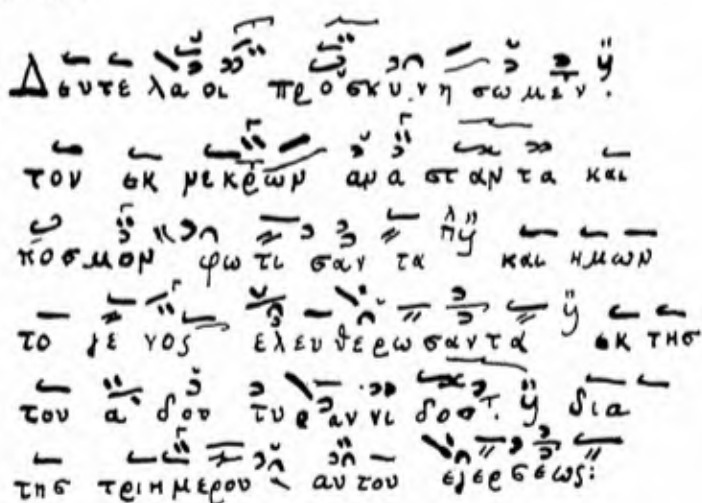 Δευτε λαοι προσκυνησωμεν.
τον εκ νεκρων αναστάντα και
κοσμον φωτισαντα και ημων
το γενος ελευθερωσαντα εκ της
του αδου τυραννιδος. δια
της τριημερου αυτου εγερσεως: